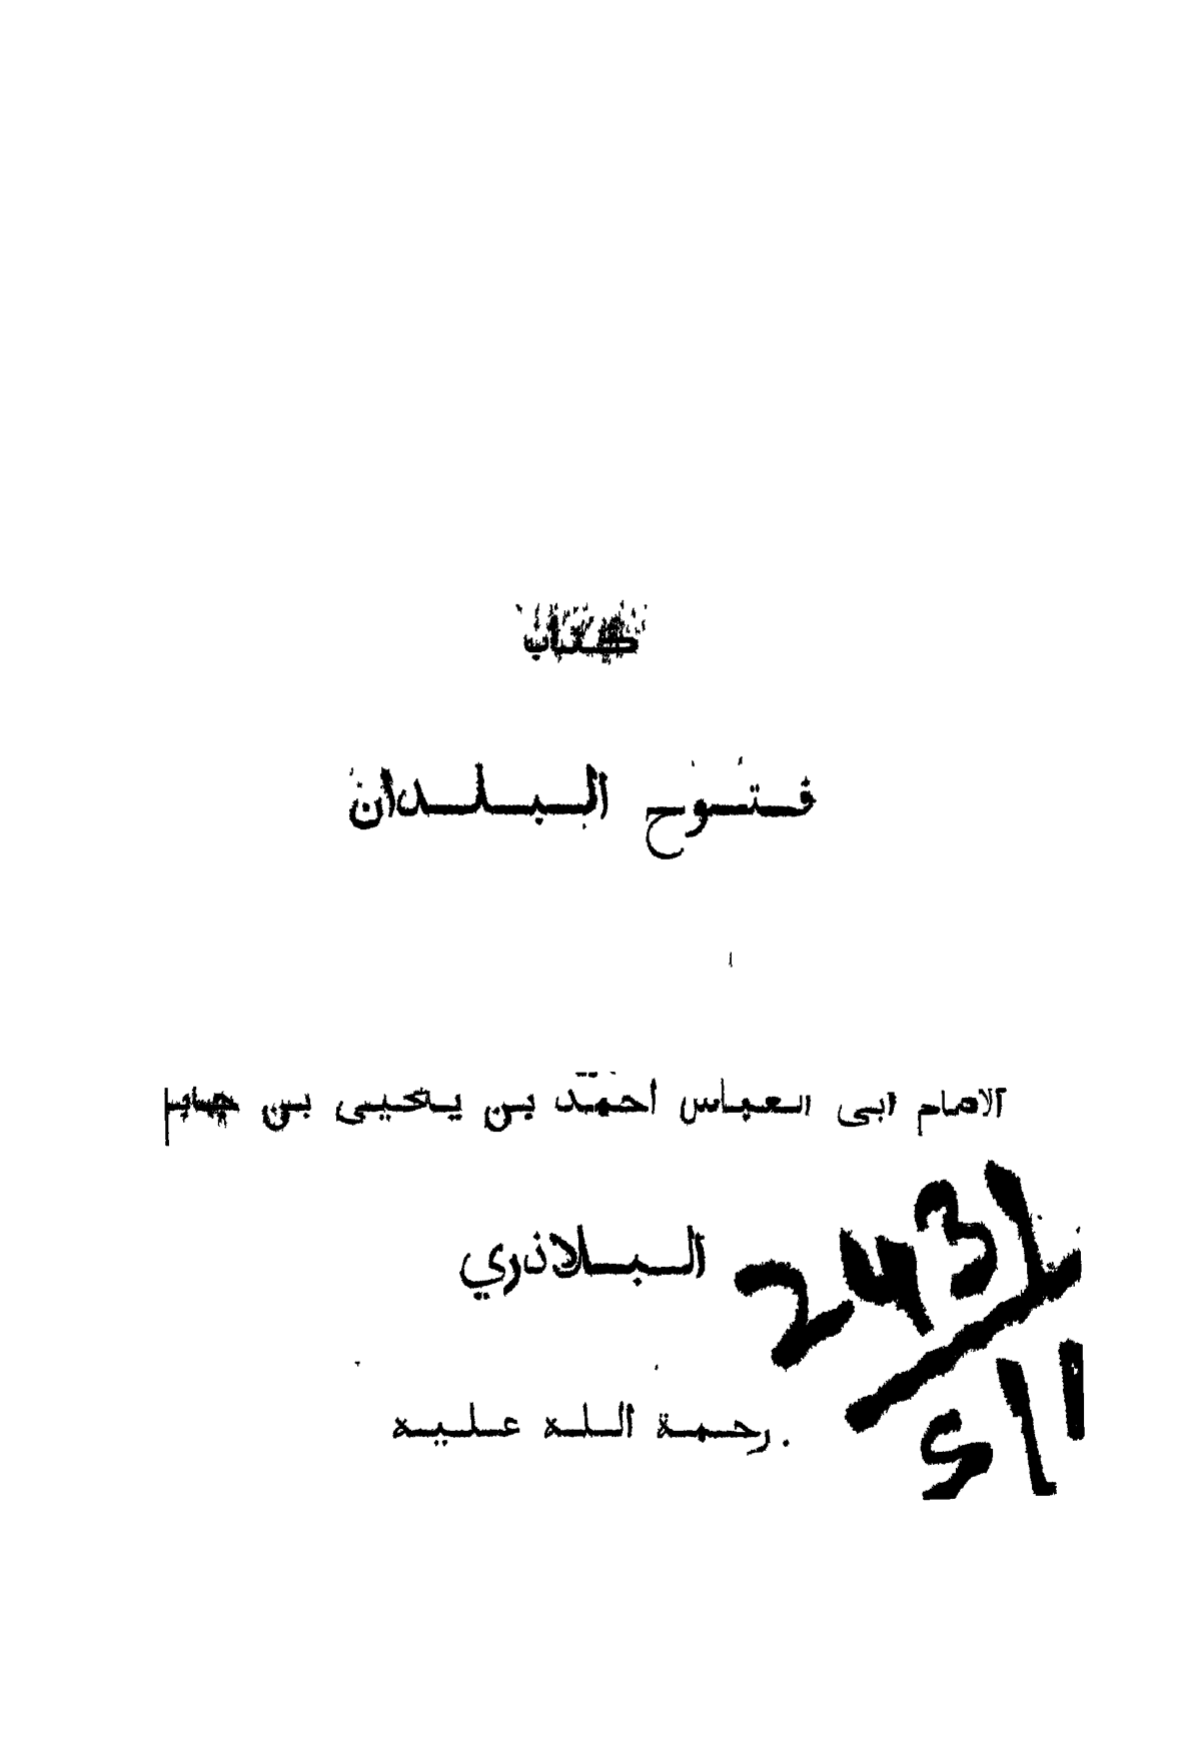 كتاب
فتوح البلدان
الامام ابى العباس احمد بن يحيى بن جابر
البلاذري
2431
511
رحمة الله عليه